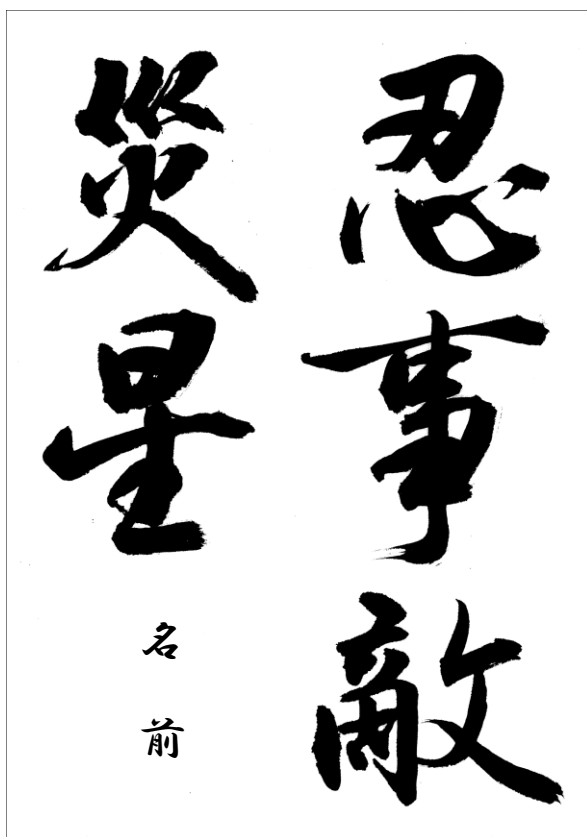 忍事敵
災星
名前